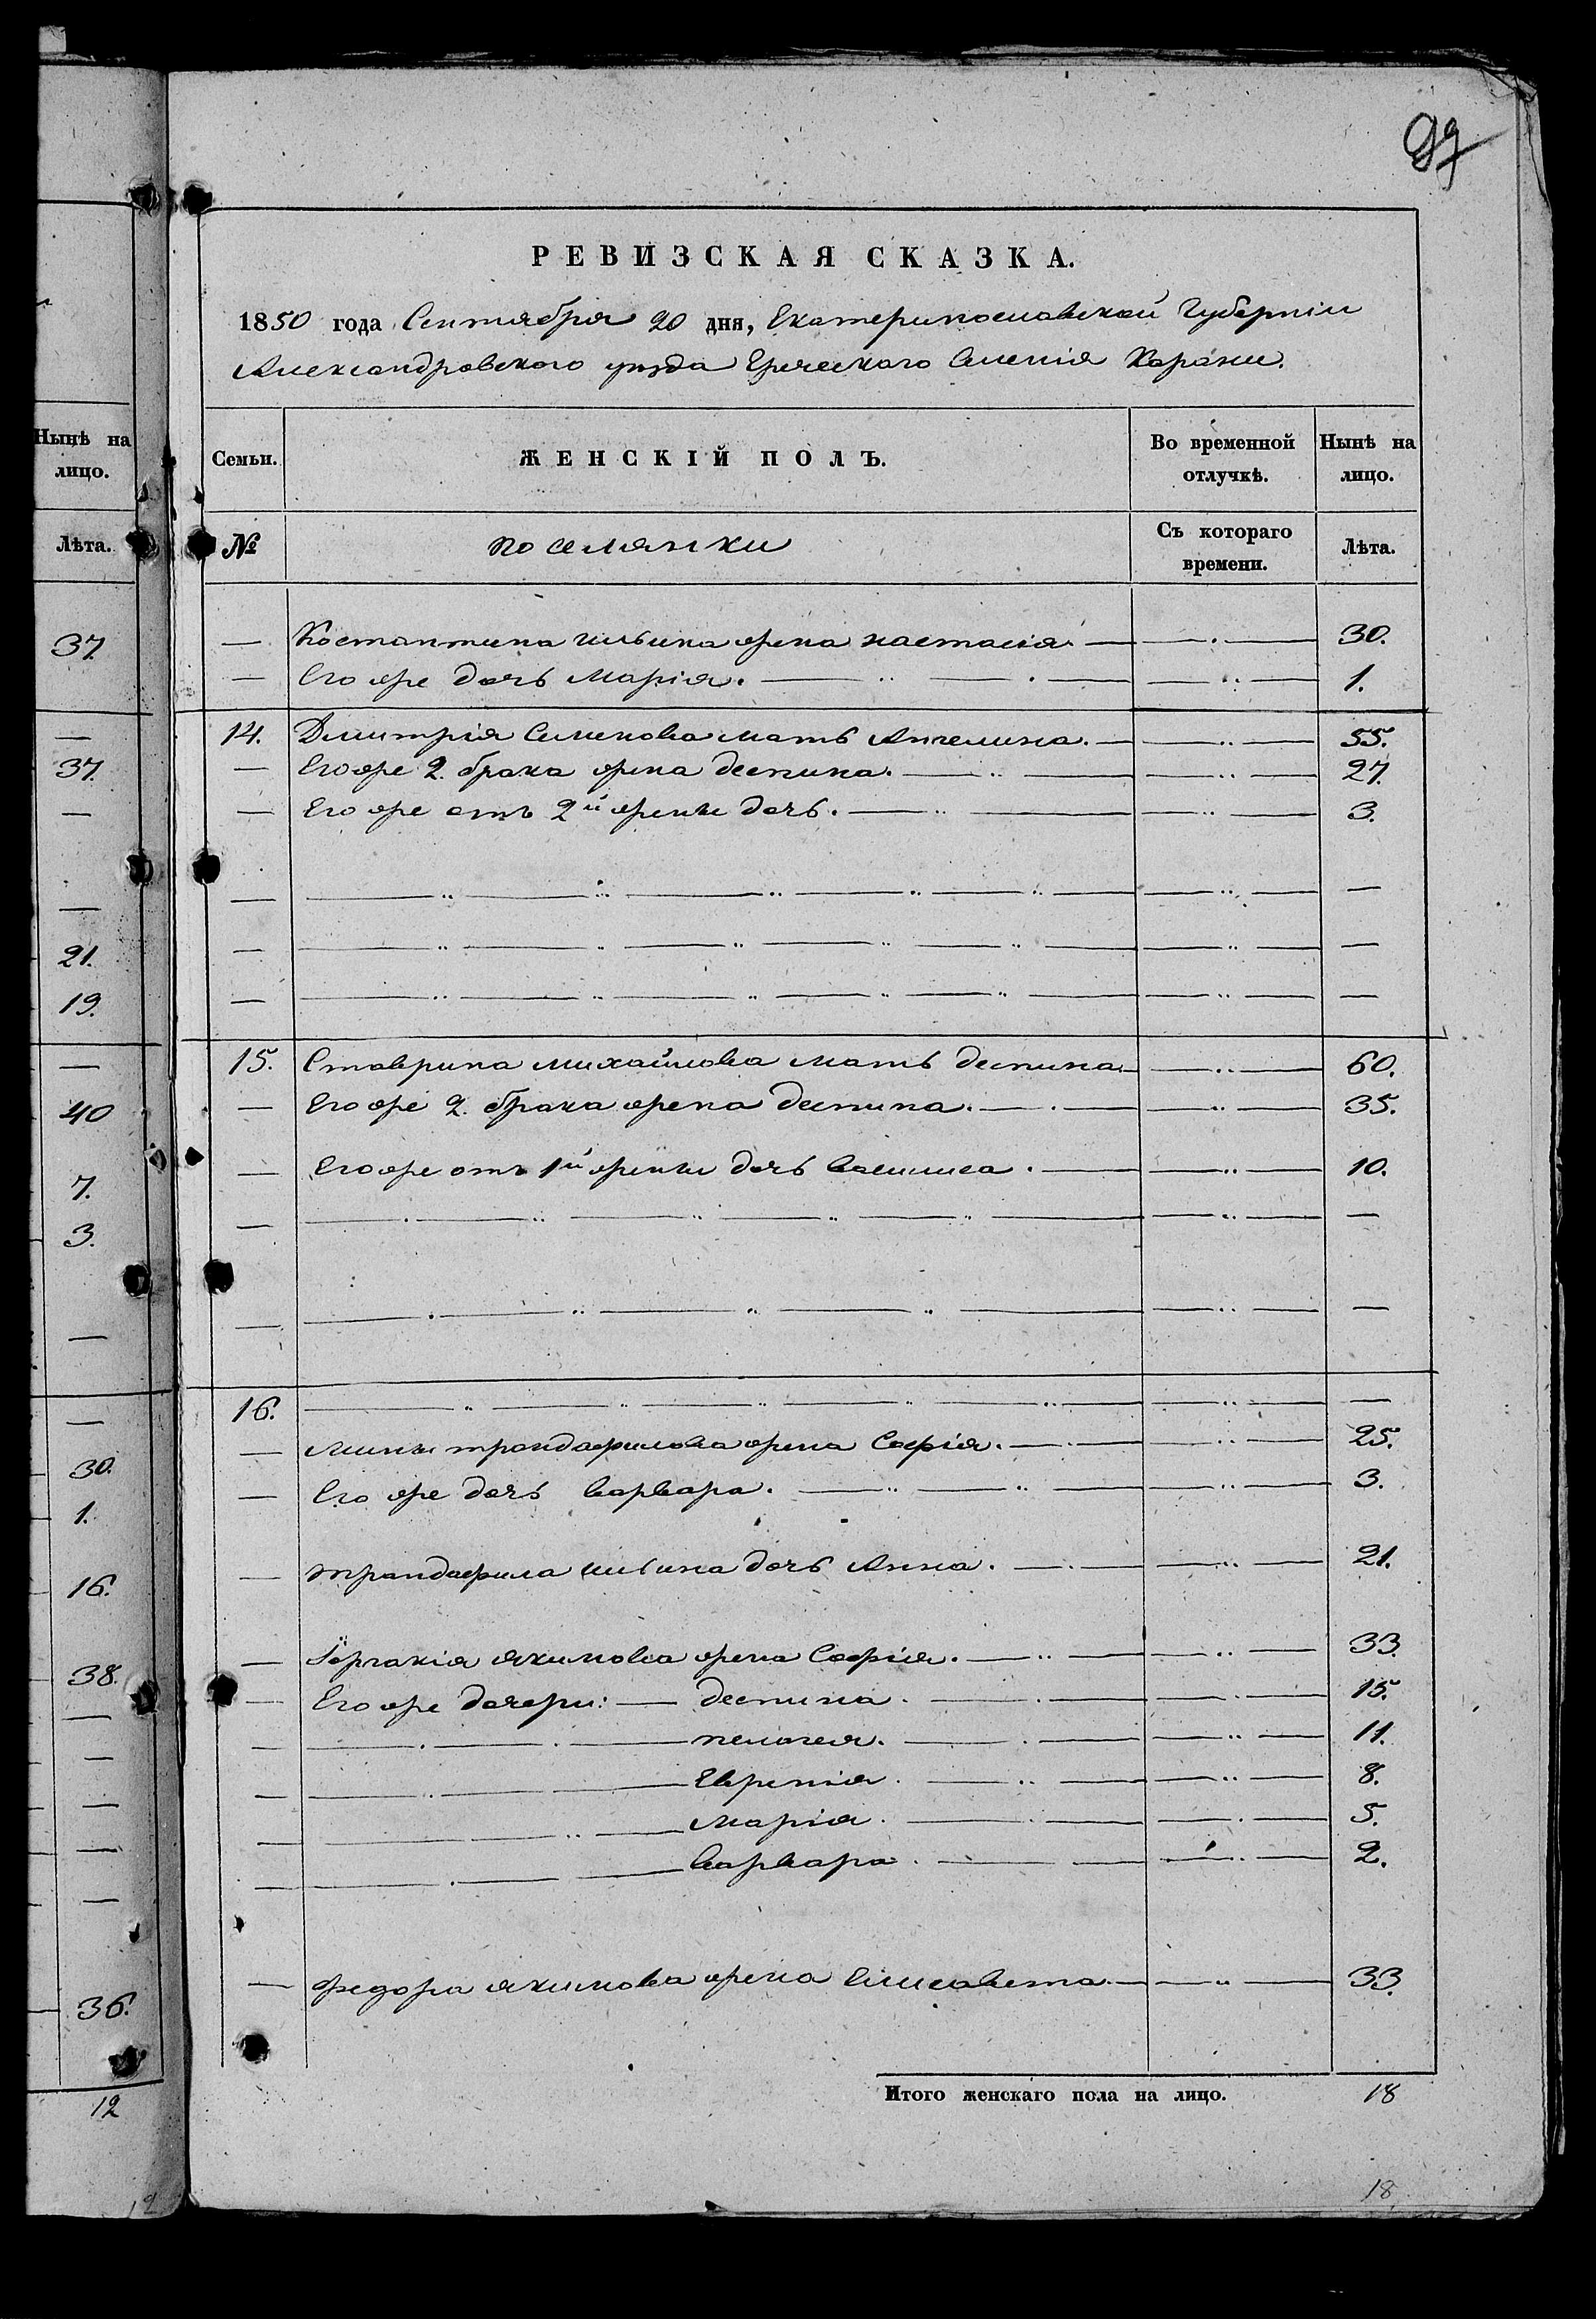 37
РЕВИЗСКАЯ СКАЗКА.
1850 года Сентября 20 дня, Екатеринославской Губерніи
Александровского уѣзда Греческого Селенія Карани.
Нынѣ на лицо.
Лѣта.
37.
—
37.
—
—
21.
19.
—
40
7.
3.
—
—
30.
1.
16.
38.
—
—
—
—
—
36.
12
Семьи. ЖЕНСКІЙ ПОЛЪ. Во временной отлучкѣ. Нынѣ на лицо.
№ поселянки Съ котораго времени. Лѣта.
— Костантина ильина жена настасія. — 30.
— Его же дочь Марія. — 1.
14. Дмитрія Семенова мать Ангелина. — 55.
— Его же 2. брака жена деспина. — 27.
— Его же отъ 2й жены дочь. — 3.
15. Ставрина михайлова мать деспина — 60.
— Его же 2. брака жена деспина. — 35.
— Его же отъ 1й жены дочь василиса. — 10.
16. — —
— Мины трандафилова жена Софія. — 25.
— Его же дочь варвара. — 3.
— трандафила ильина дочь Анна. — 21.
— Іоргакія якимова жена Софія. — 33.
— Его же дочери: — деспина. — 15.
— пелагея. — 11.
— Евгенія. — 8.
— Марія. — 5.
— варвара. — 2.
— федора якимова жена Елисавета. — 33.
Итого женскаго пола на лицо. 18
18